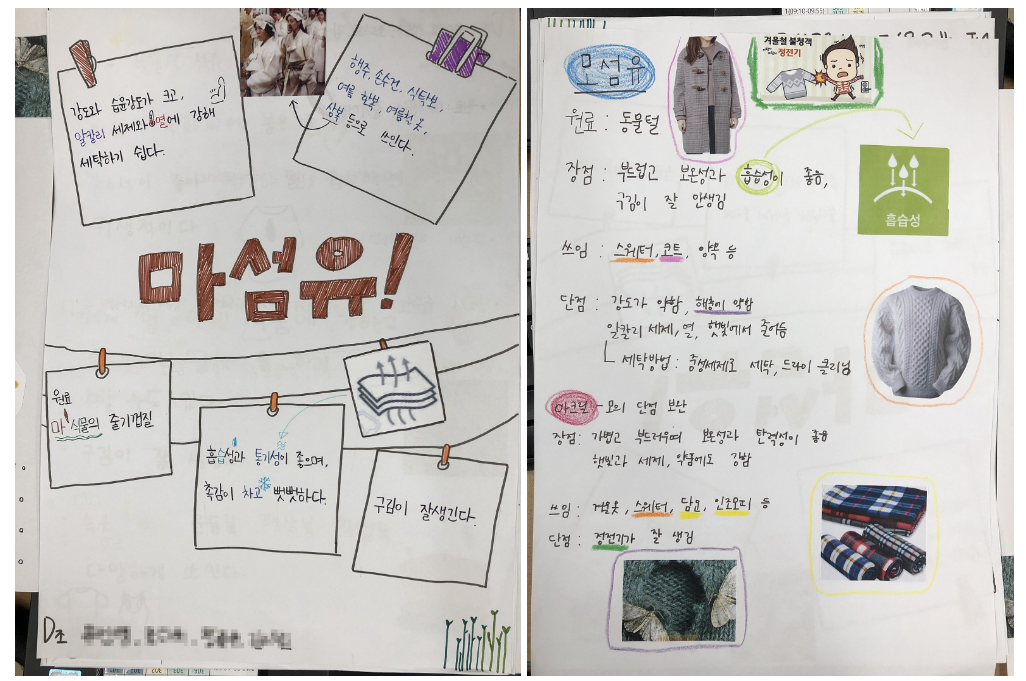 강도와 습윤강도가 크고,
알칼리 세제와 열에 강해
세탁하기 쉽다.
행주, 손수건, 식탁보,
여름 한복, 여름철 옷,
상복 등으로 쓰인다.
마섬유!
원료
마 식물의 줄기껍질
흡습성과 통기성이 좋으며,
촉감이 차고 뻣뻣하다.
구김이 잘생긴다.
D조
모섬유
겨울철 불청객
정전기
원료 : 동물털
장점 : 부드럽고 보온성과 흡습성이 좋음,
구김이 잘 안생김
흡습성
쓰임 : 스웨터, 코트, 양복 등
단점 : 강도가 약함, 해충에 약함
알칼리 세제, 열, 햇빛에서 줄어듬
세탁방법 : 중성세제로 세탁, 드라이 클리닝
아크릴 - 모의 단점 보완
장점 : 가볍고 부드러우며 보온성과 탄력성이 좋음
햇빛과 세제, 약품에도 강함
쓰임 : 겨울옷, 스웨터, 담요, 인조모피 등
단점 : 정전기가 잘 생김